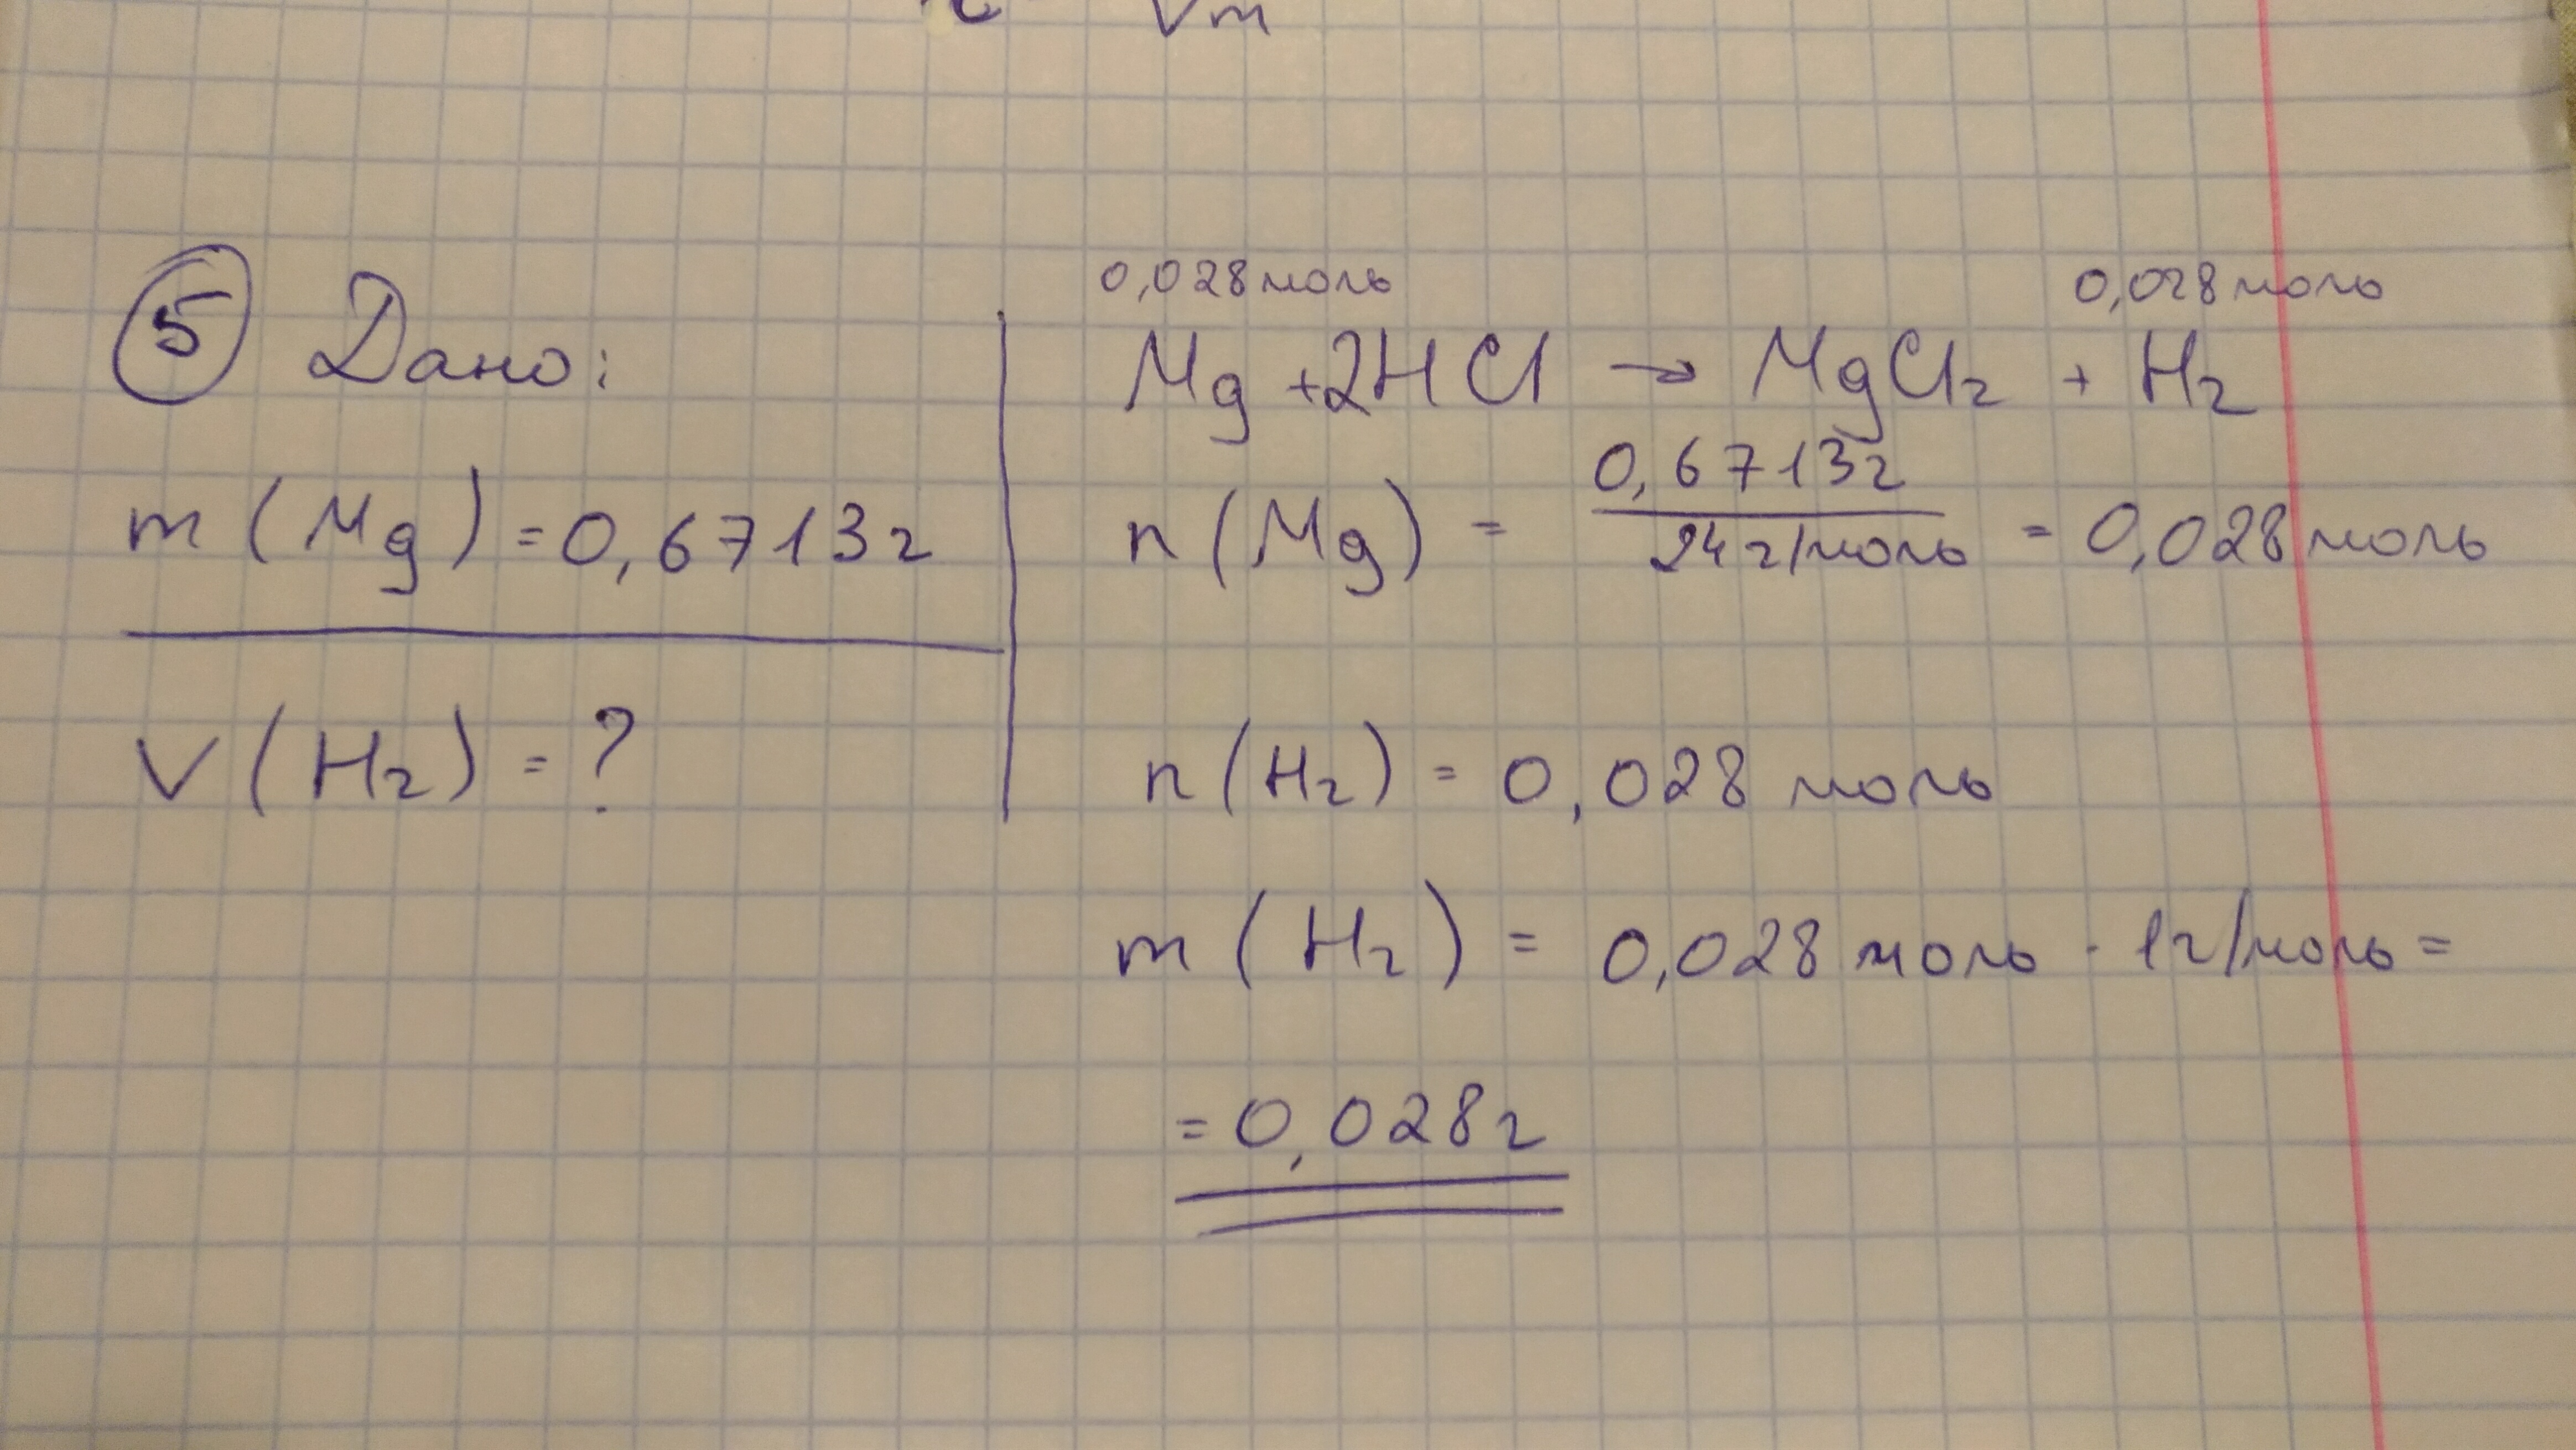 Vm
⑤ Дано:
m (Mg) = 0,6713г
V (H₂) = ?
0,028 моль 0,028 моль
Mg + 2HCl → MgCl₂ + H₂
n (Mg) = 0,6713г / 24 г/моль = 0,028 моль
n (H₂) = 0,028 моль
m (H₂) = 0,028 моль · 1г/моль =
= 0,028г